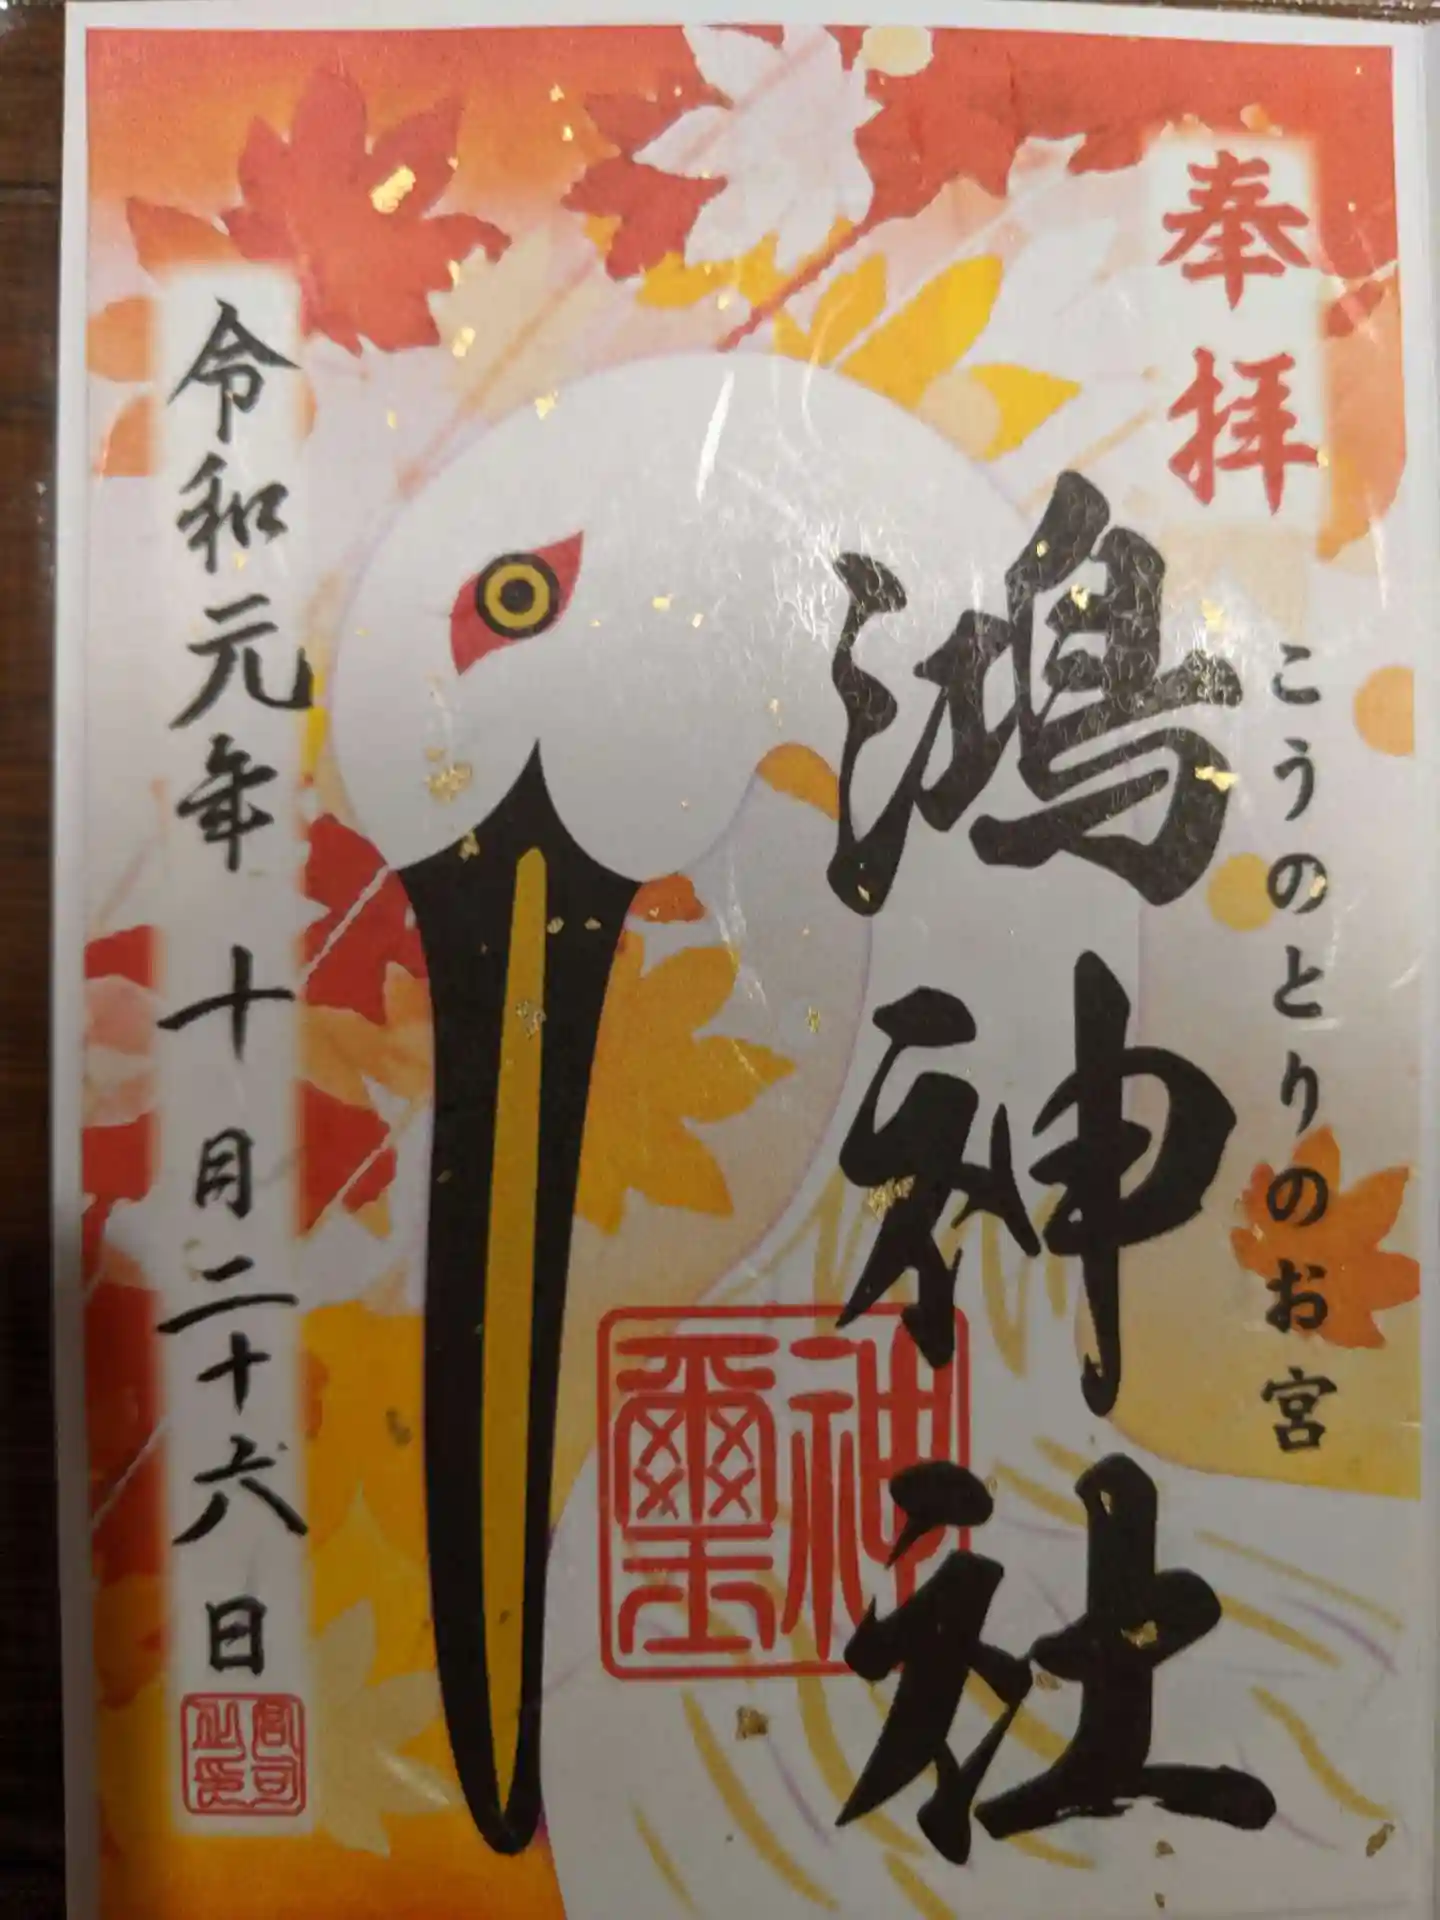 奉拝
こうのとりのお宮
鴻神社
神璽
令和元年十月二十六日
宮司之印